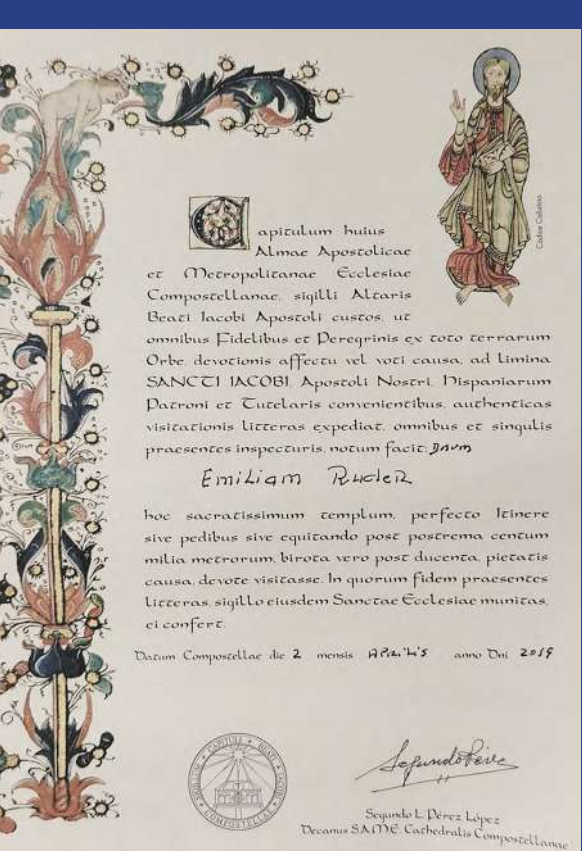 Capitulum huius
Almae Apostolicae
et Metropolitanae Ecclesiae
Compostellanae, sigilli Altaris
Beati Iacobi Apostoli custos, ut
omnibus Fidelibus et Peregrinis ex toto terrarum
Orbe, devotionis affectu vel voti causa, ad limina
SANCTI IACOBI, Apostoli Nostri, Hispaniarum
Patroni et Tutelaris convenientibus, authenticas
visitationis litteras expediat, omnibus et singulis
praesentes inspecturis, notum facit: Dnum
Emiliam
hoc sacratissimum templum, perfecto Itinere
sive pedibus sive equitando post postrema centum
milia metrorum, birota vero post ducenta, pietatis
causa, devote visitasse. In quorum fidem praesentes
litteras, sigillo eiusdem Sanctae Ecclesiae munitas,
ei confert.
Datum Compostellae die 2 mensis Aprilis anno Dni 2019
Codice Calixtino
CAPITULI BEATI IACOBI COMPOSTELLAE
Segundo L. Pérez López
Decanus S.A.M.E. Cathedralis Compostellanae